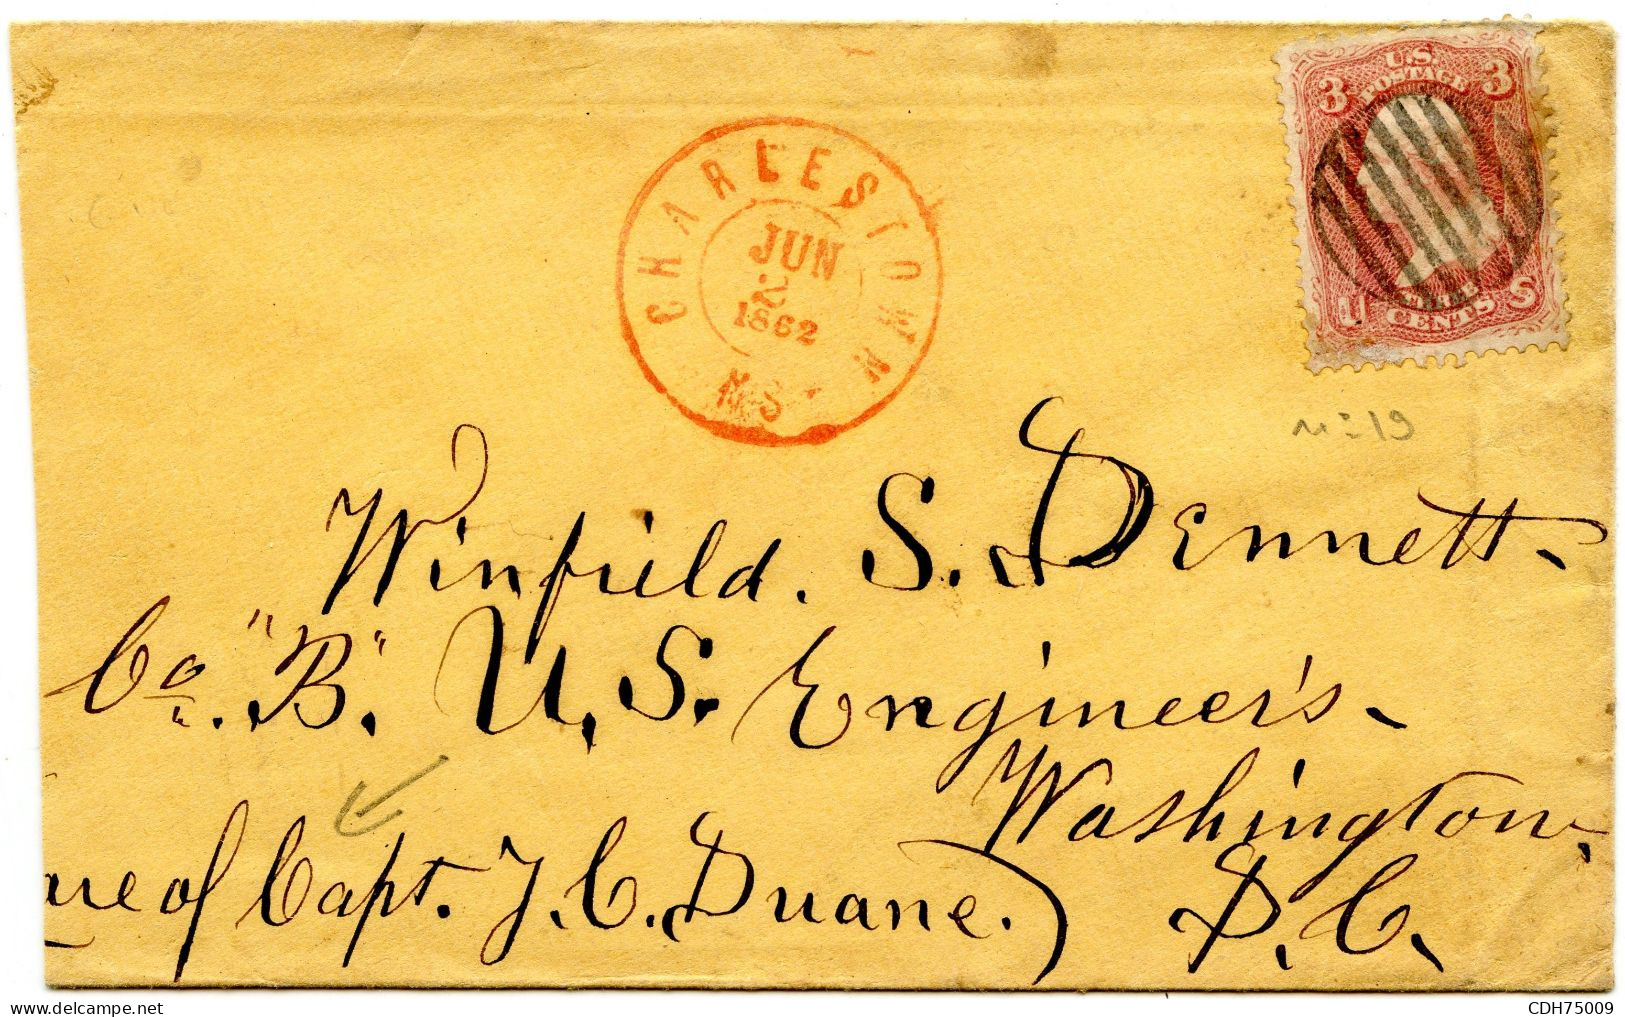 U.S.
POSTAGE
3 3
U S
THREE
CENTS
CHARLESTOWN
JUN
1862
MS
nº 19
Winfield. S. Dennett.
Co. "B". U.S. Engineer's.
Washington,
are of Capt. J. C. Duane.) D.C.
www.delcampe.net
CDH75009